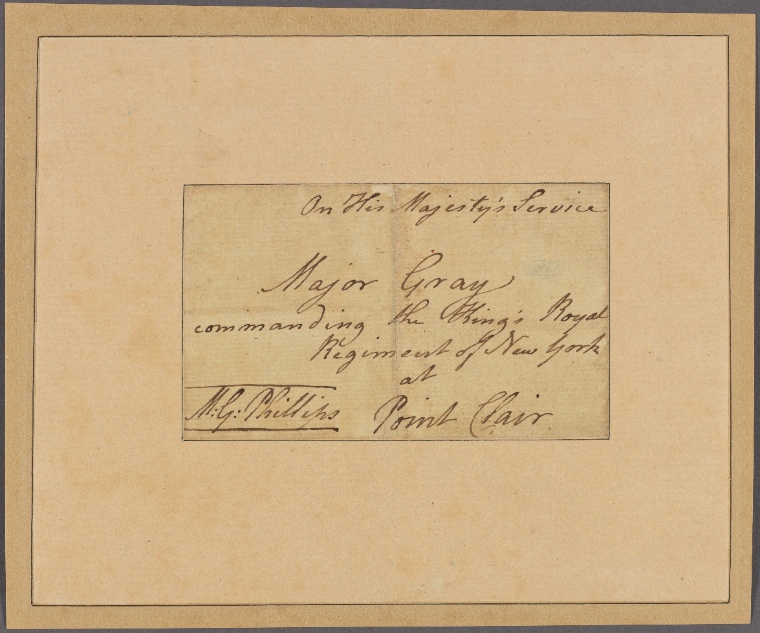 On His Majesty's Service
Major Gray
commanding the King's Royal
Regiment of New York
at
M: G: Phillips Point Clair